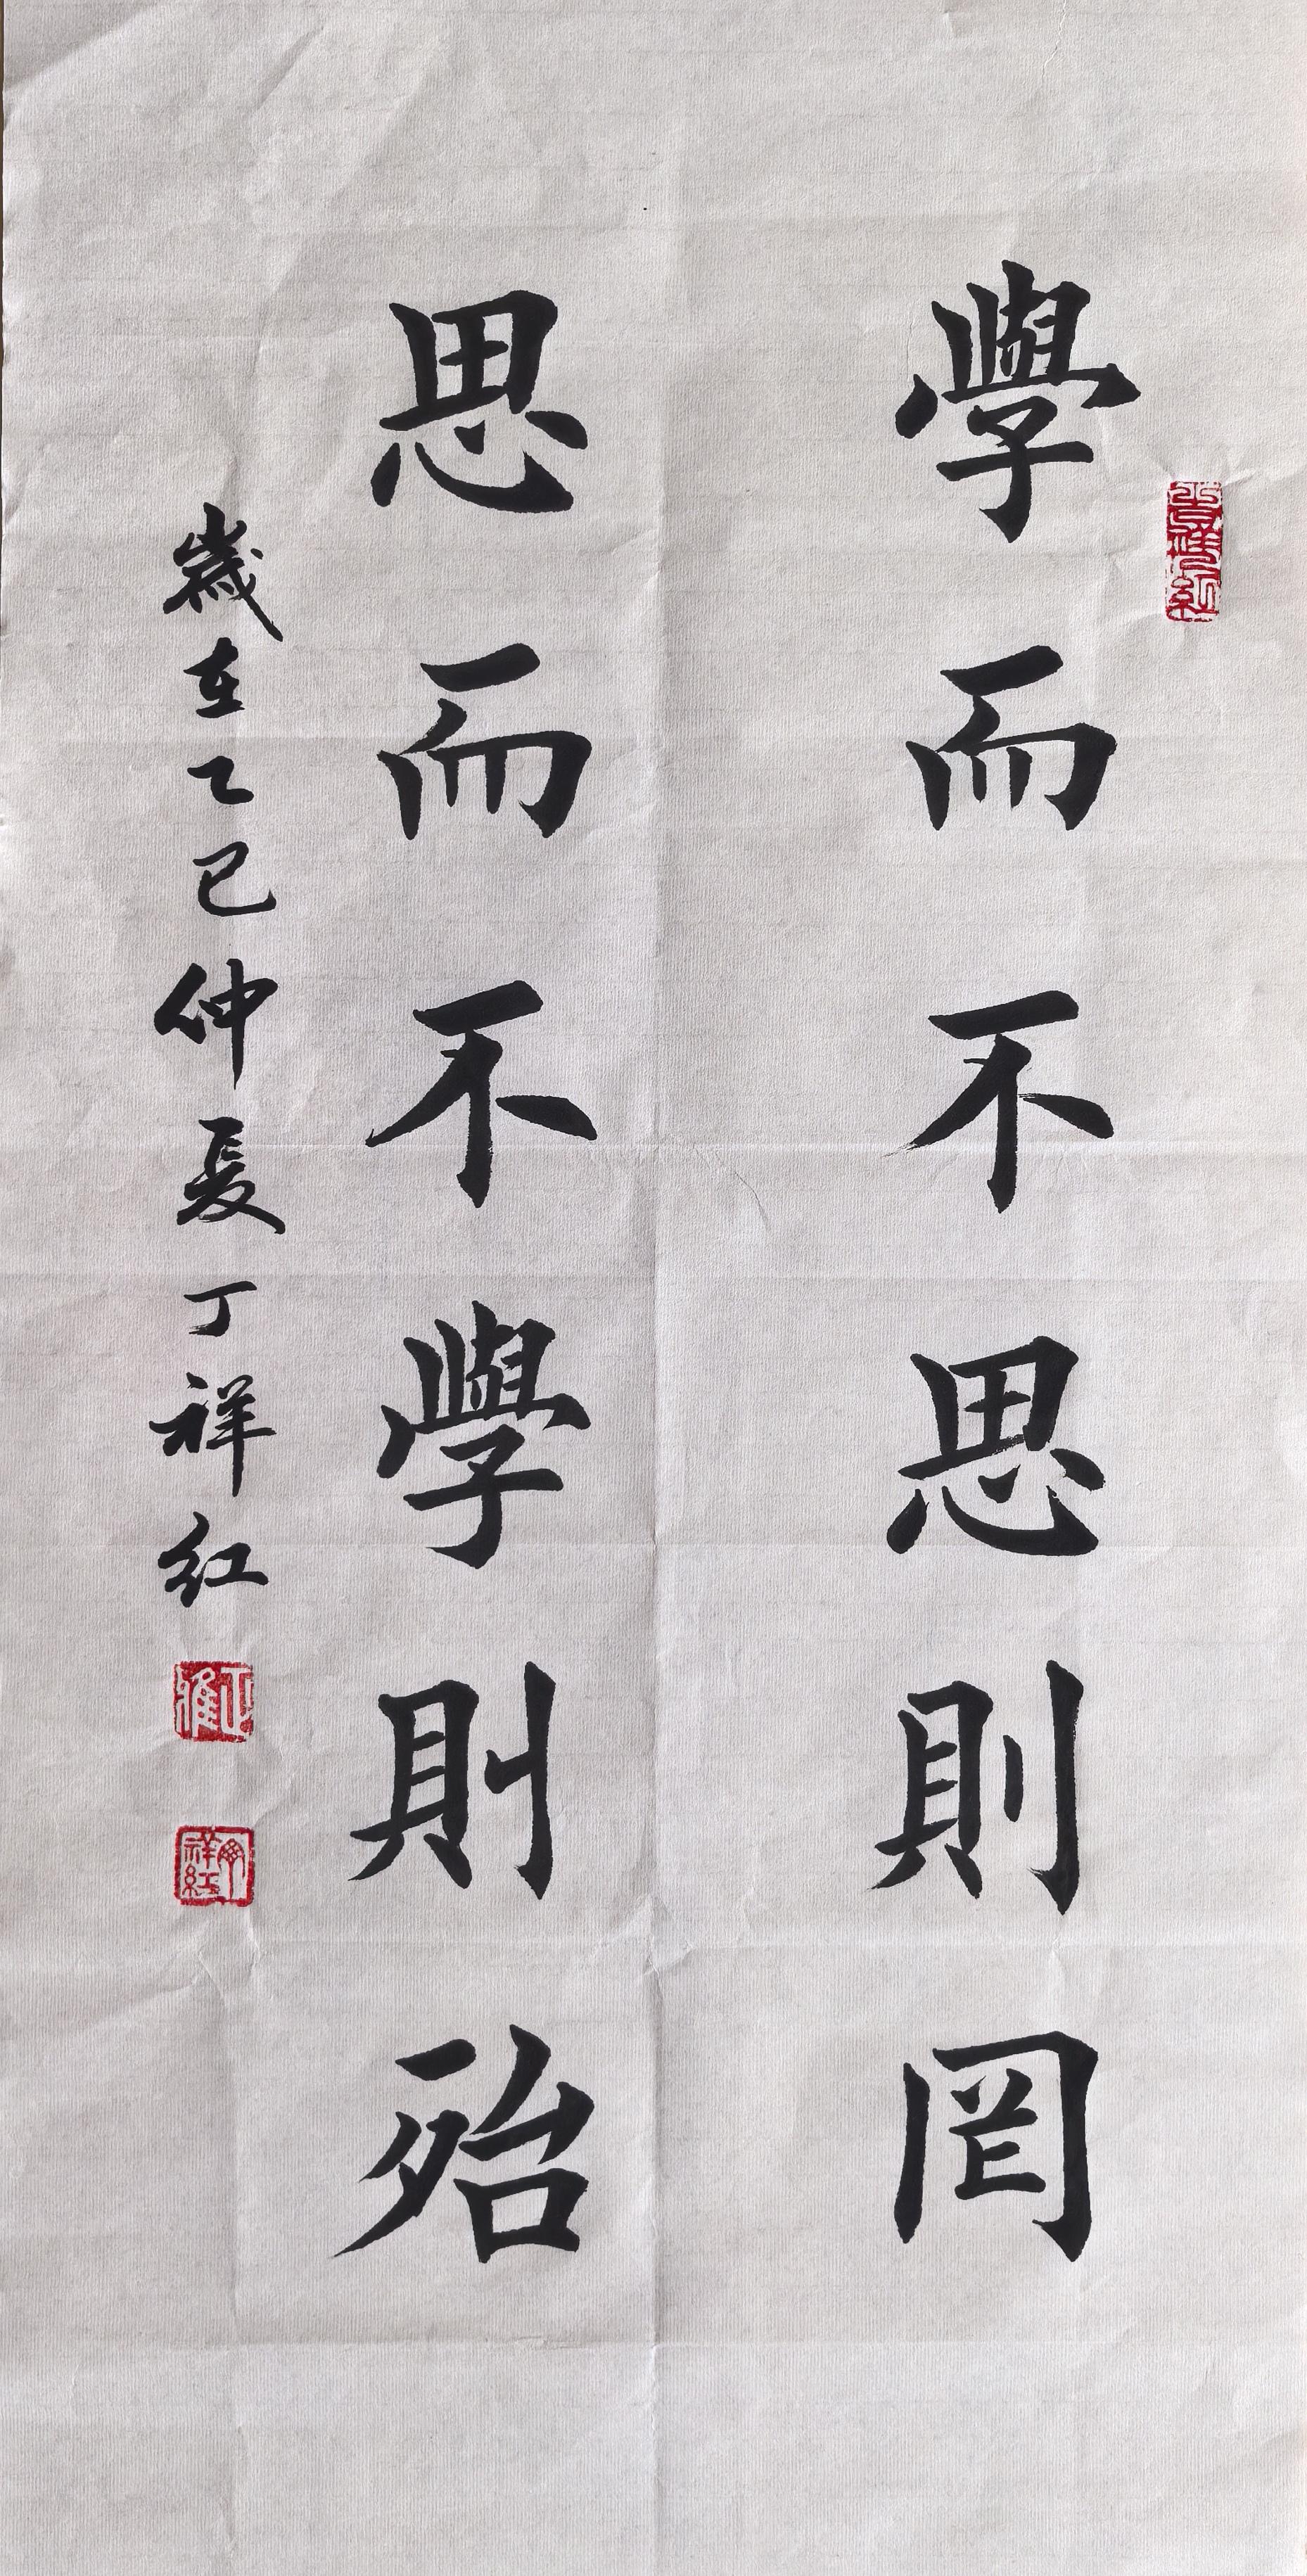 學而不思則罔
思而不學則殆
歲在乙巳仲夏丁祥红
正雅
祥紅